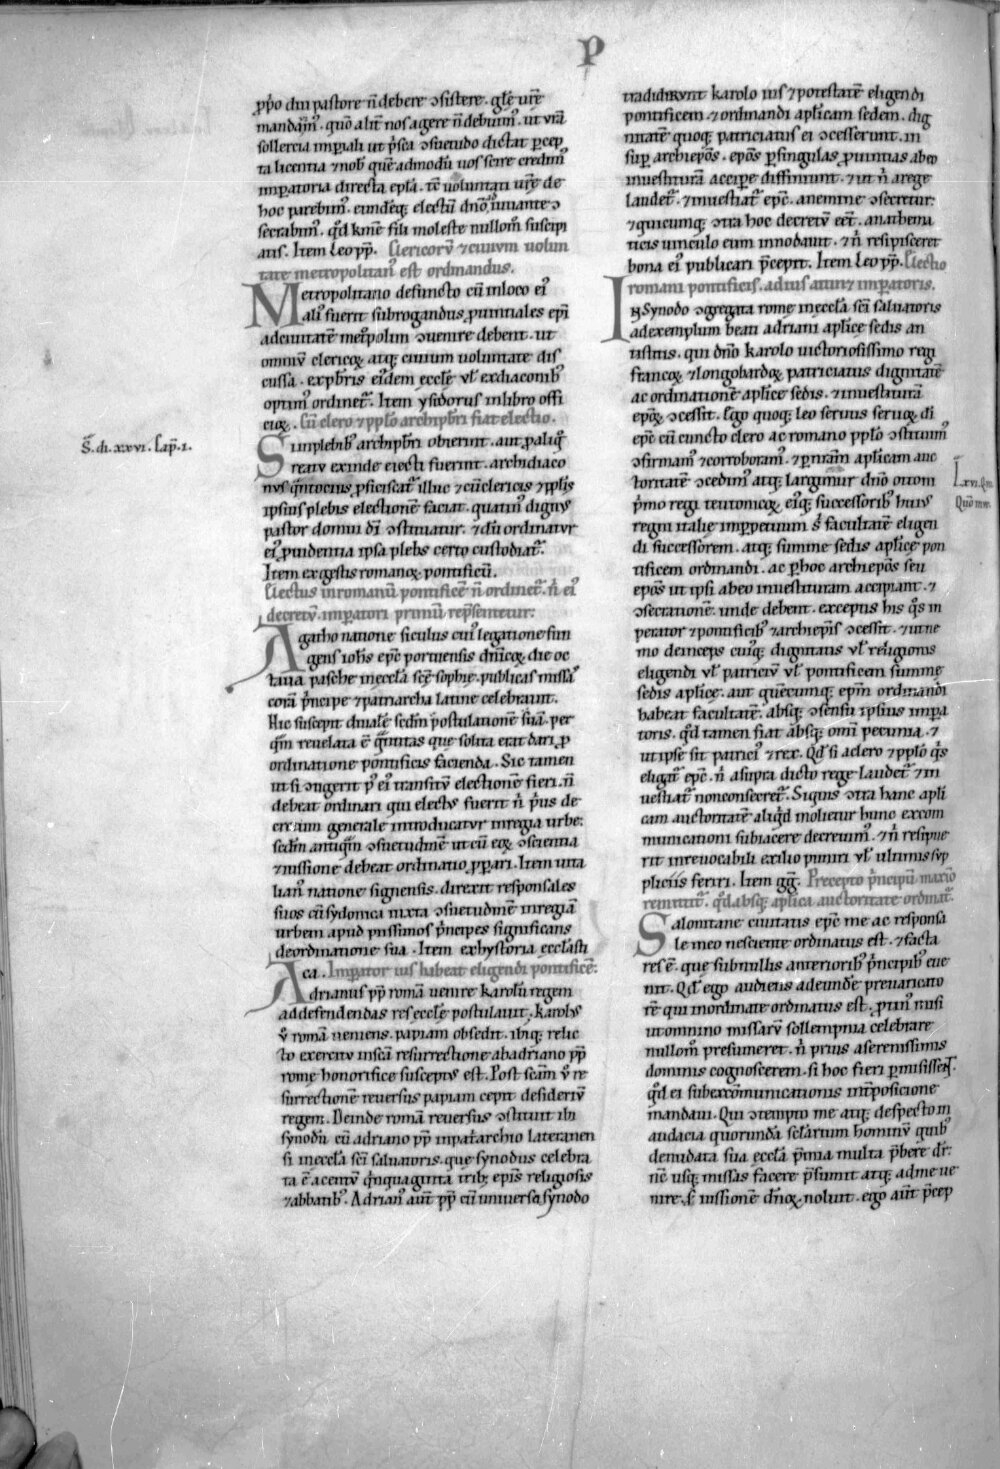 P
pp̄o diu pastore n̄ debere ↄsistere. gl̄e ur̄e
mandam᷒. quo alit̄ nos agere n̄ debuim᷒. ut ur̄a
sollercia imperiali ut p̄sca ↄsuetudo dictat percep
ta licentia ⁊ nob̄ quē admodū uos scire credim᷒
imperatoria directa epl̄a. tē uoluntati ur̄e de
hoc parebim᷒. eundēq; electū dn̄o iuuante ↄ
secrabim᷒. qd̄ k̄me fili moleste nullom̄ suscipi
atis. Item Leo pp̄. Clericorū ⁊ ciuium uolun
tate metropolitan᷒ est ordinandus.
Metropolitano defuncto cū in loco ei᷒
ali᷒ fuerit subrogandus, ꝓuintiales ep̄i
ad ciuitatē met̄polim ↄuenire debent. ut
omniū clericoꝝ atq; ciuium uoluntate dis
cussa. ex pb̄ris ei᷒dem eccl̄e ul̄ ex diaconib᷒
optim᷒ ordinet᷒. Item ysidorus in libro offi
cioꝝ. Cū clero ⁊ ppl̄o archipb̄ri fiat electio.
Si in plebib᷒ archipb̄ri obierint. aut ꝓ aliq̄
reatu exinde eiecti fuerint. archidiaco
nus q̄ntocius, ꝓficiscat᷒ illuc ⁊ cū clericis ⁊ ppl̄is
ipsius plebis electionē faciat. quatin᷒ dign᷒
pastor domui dī ↄstituatur. ⁊ dū ordinatur
ei᷒ ꝓuidentia ipsa plebs certo custodiat᷒.
Item ex gestis romanoꝝ pontificū.
Electus in romanū pontificē n̄ ordinet᷒. n̄ ei᷒
decretū imperatori primū rep̄sentetur.
Agatho natione siculus cui᷒ legatione fun
gens ioh̄s ep̄c portuensis dn̄icoꝝ die oc
taua pasche in eccl̄a sc̄e sophie, publicas missas
corā p̄ncipe ⁊ patriarcha latine celebrauit.
Hic suscepit diuale sedm̄ postulationē suā. per
q̄m reuelata ē q̄ntitas que solita erat dari ꝓ
ordinatione pontificis facienda. Sic tamen
ut si ↄtigerit p᷒ ei᷒ transitū electionē fieri. n̄
debeat ordinari qui elect᷒ fuerit n̄ p̄us de
cretum generale introducatur in regia urbe:
sedm̄ antiquā ↄsuetudinē ut cū eoꝝ ↄscientia
⁊ iussione debeat ordinatio, ꝓpari. Item uita
lian᷒ natione signensis. direxit responsales
suos cū synodica iuxta ↄsuetudinē in regiā
urbem apud piissimos p̄ncipes significans
de ordinatione sua. Item ex hystoria ecclasti
ca. Imperator ius habeat eligendi pontificē:
Adrianus pp̄ romā uenire karolū regem
ad defendendas res eccl̄e postulauit. karol᷒
u᷒ romā ueniens. papiam obsedit. ibiq; relic
to exercitu in sc̄am resurrectionē ab adriano pp̄
rome honorifice suscept᷒ est. Post sc̄am u᷒ re
surrectionē reuersus papiam cepit desideriū
regem. Deinde romā reuersus ↄstituit ibi
synodū cū adriano pp̄ in patriarchio lateranen
si in eccl̄a sc̄i saluatoris. que synodus celebra
ta ē a centū q̄nquaginta trib; ep̄is religiosis
⁊ abbatib᷒. Adrian᷒ aut̄ pp̄ cū uniuersa synodo
tradiderunt karolo ius ⁊ potestatē eligendi
pontificem. ⁊ ordinandi apl̄icam sedem. dig
nitatē quoq; patriciatus ei ↄcesserunt. in
sup̄ archiep̄os. ep̄os ꝑ singulas ꝓuintias ab eo
inuestiturā accipe diffiniuit. ⁊ ut n̄ a rege
laudet᷒. ⁊ inuestiat᷒ ep̄c. a nemine ↄsecretur.
⁊ quicumq; ↄtra hoc decretū eēt. anathema
ticis uinculo eum innodauit. ⁊ n̄ resipisceret
bona ei᷒ publicari p̄cepit. Item Leo pp̄. Electio
romani pontificis. ad ius attin; imperatoris.
In Synodo ↄgregata rome in eccl̄a sc̄i saluatoris
ad exemplum beati adriani aplice sedis an
tistitis. qui dn̄o karolo uictoriosissimo regi
francoꝝ ⁊ longobardoꝝ patriciatus dignitatē
ac ordinationē apl̄ice sedis. ⁊ inuestiturā
ep̄oꝝ ↄcessit. Ego quoq; leo seruus seruoꝝ dī
ep̄c cū cuncto clero ac romano pplo ↄstituim᷒
ↄfirmam᷒ ⁊ corroboram᷒. ⁊ ꝑ nr̄am apl̄icam auc
toritatē ↄcedim᷒ atq; largimur dn̄o ottoni
p̄mo regi teutonicoꝝ, ei᷒q; successorib᷒ hui᷒
regni italie imꝑpetuum s᷒ facultatē eligen
di successorem. atq; summe sedis apl̄ice pon
tificem ordinandi. ac ꝑ hoc archiep̄os seu
ep̄os ut ipsi ab eo inuestituram accipiant. ⁊
ↄsecrationē unde debent. exceptis his q̄s im
perator ⁊ pontificib᷒ ⁊ archiep̄is ↄcessit. ⁊ ut ne
mo deinceps cui᷒q; dignitatis ul̄ religionis
eligendi ul̄ patriciū ul̄ pontificem summe
sedis apl̄ice. aut quēcumq; ep̄m ordinandi
habeat facultatē. absq; ↄsensu ipsius impera
toris. qd̄ tamen fiat absq; omi pecunia. ⁊
ut ipse sit patrici᷒ ⁊ rex. Qd̄ si a clero ⁊ ppl̄o q̄s
eligat᷒ ep̄c. n̄ a supra dicto rege laudet᷒ ⁊ in
uestiat᷒ non consecret᷒. Siquis ↄtra hanc apli
cam auctoritatē aliq̄d molietur hunc excom
municationi subiacere decreuim᷒. ⁊ n̄ resipue
rit inreuocabili exilio puniri ul̄ ultimis sup
pliciis feriri. Item gḡ. Precepto p̄ncipū maxim᷒
remittit᷒. qd̄ absq; aplica auctoritate ordinat᷒.
Salonitane ciuitatis ep̄c me ac responsa
le meo nesciente ordinatus est. ⁊ facta
res ē. que sub nullis anteriorib᷒ p̄ncipib᷒ eue
nit. Qd̄ ego audiens ad eundē preuaricato
rē qui inordinate ordinatus est, ꝓtin᷒ misi
ut omnino missarū sollempnia celebrare
nullom̄ presumeret. n̄ prius a serenissimis
dominis cognoscerem. si hoc fieri ꝑmisissent.
qd̄ ei sub excōmunicationis int̄posicione
mandaui. Qui ↄtempto me atq; despecto in
audacia quorundā sclarium hominū quib᷒
denudata sua eccl̄a p̄mia multa p̄bere dr̄.
nc̄ usq; missas facere p̄sumit atq; ad me ue
nire, s᷒ iussionē dn̄oꝝ noluit. ego aut̄ p̄cep
S̄. di. xxvi. Cap̄. i.